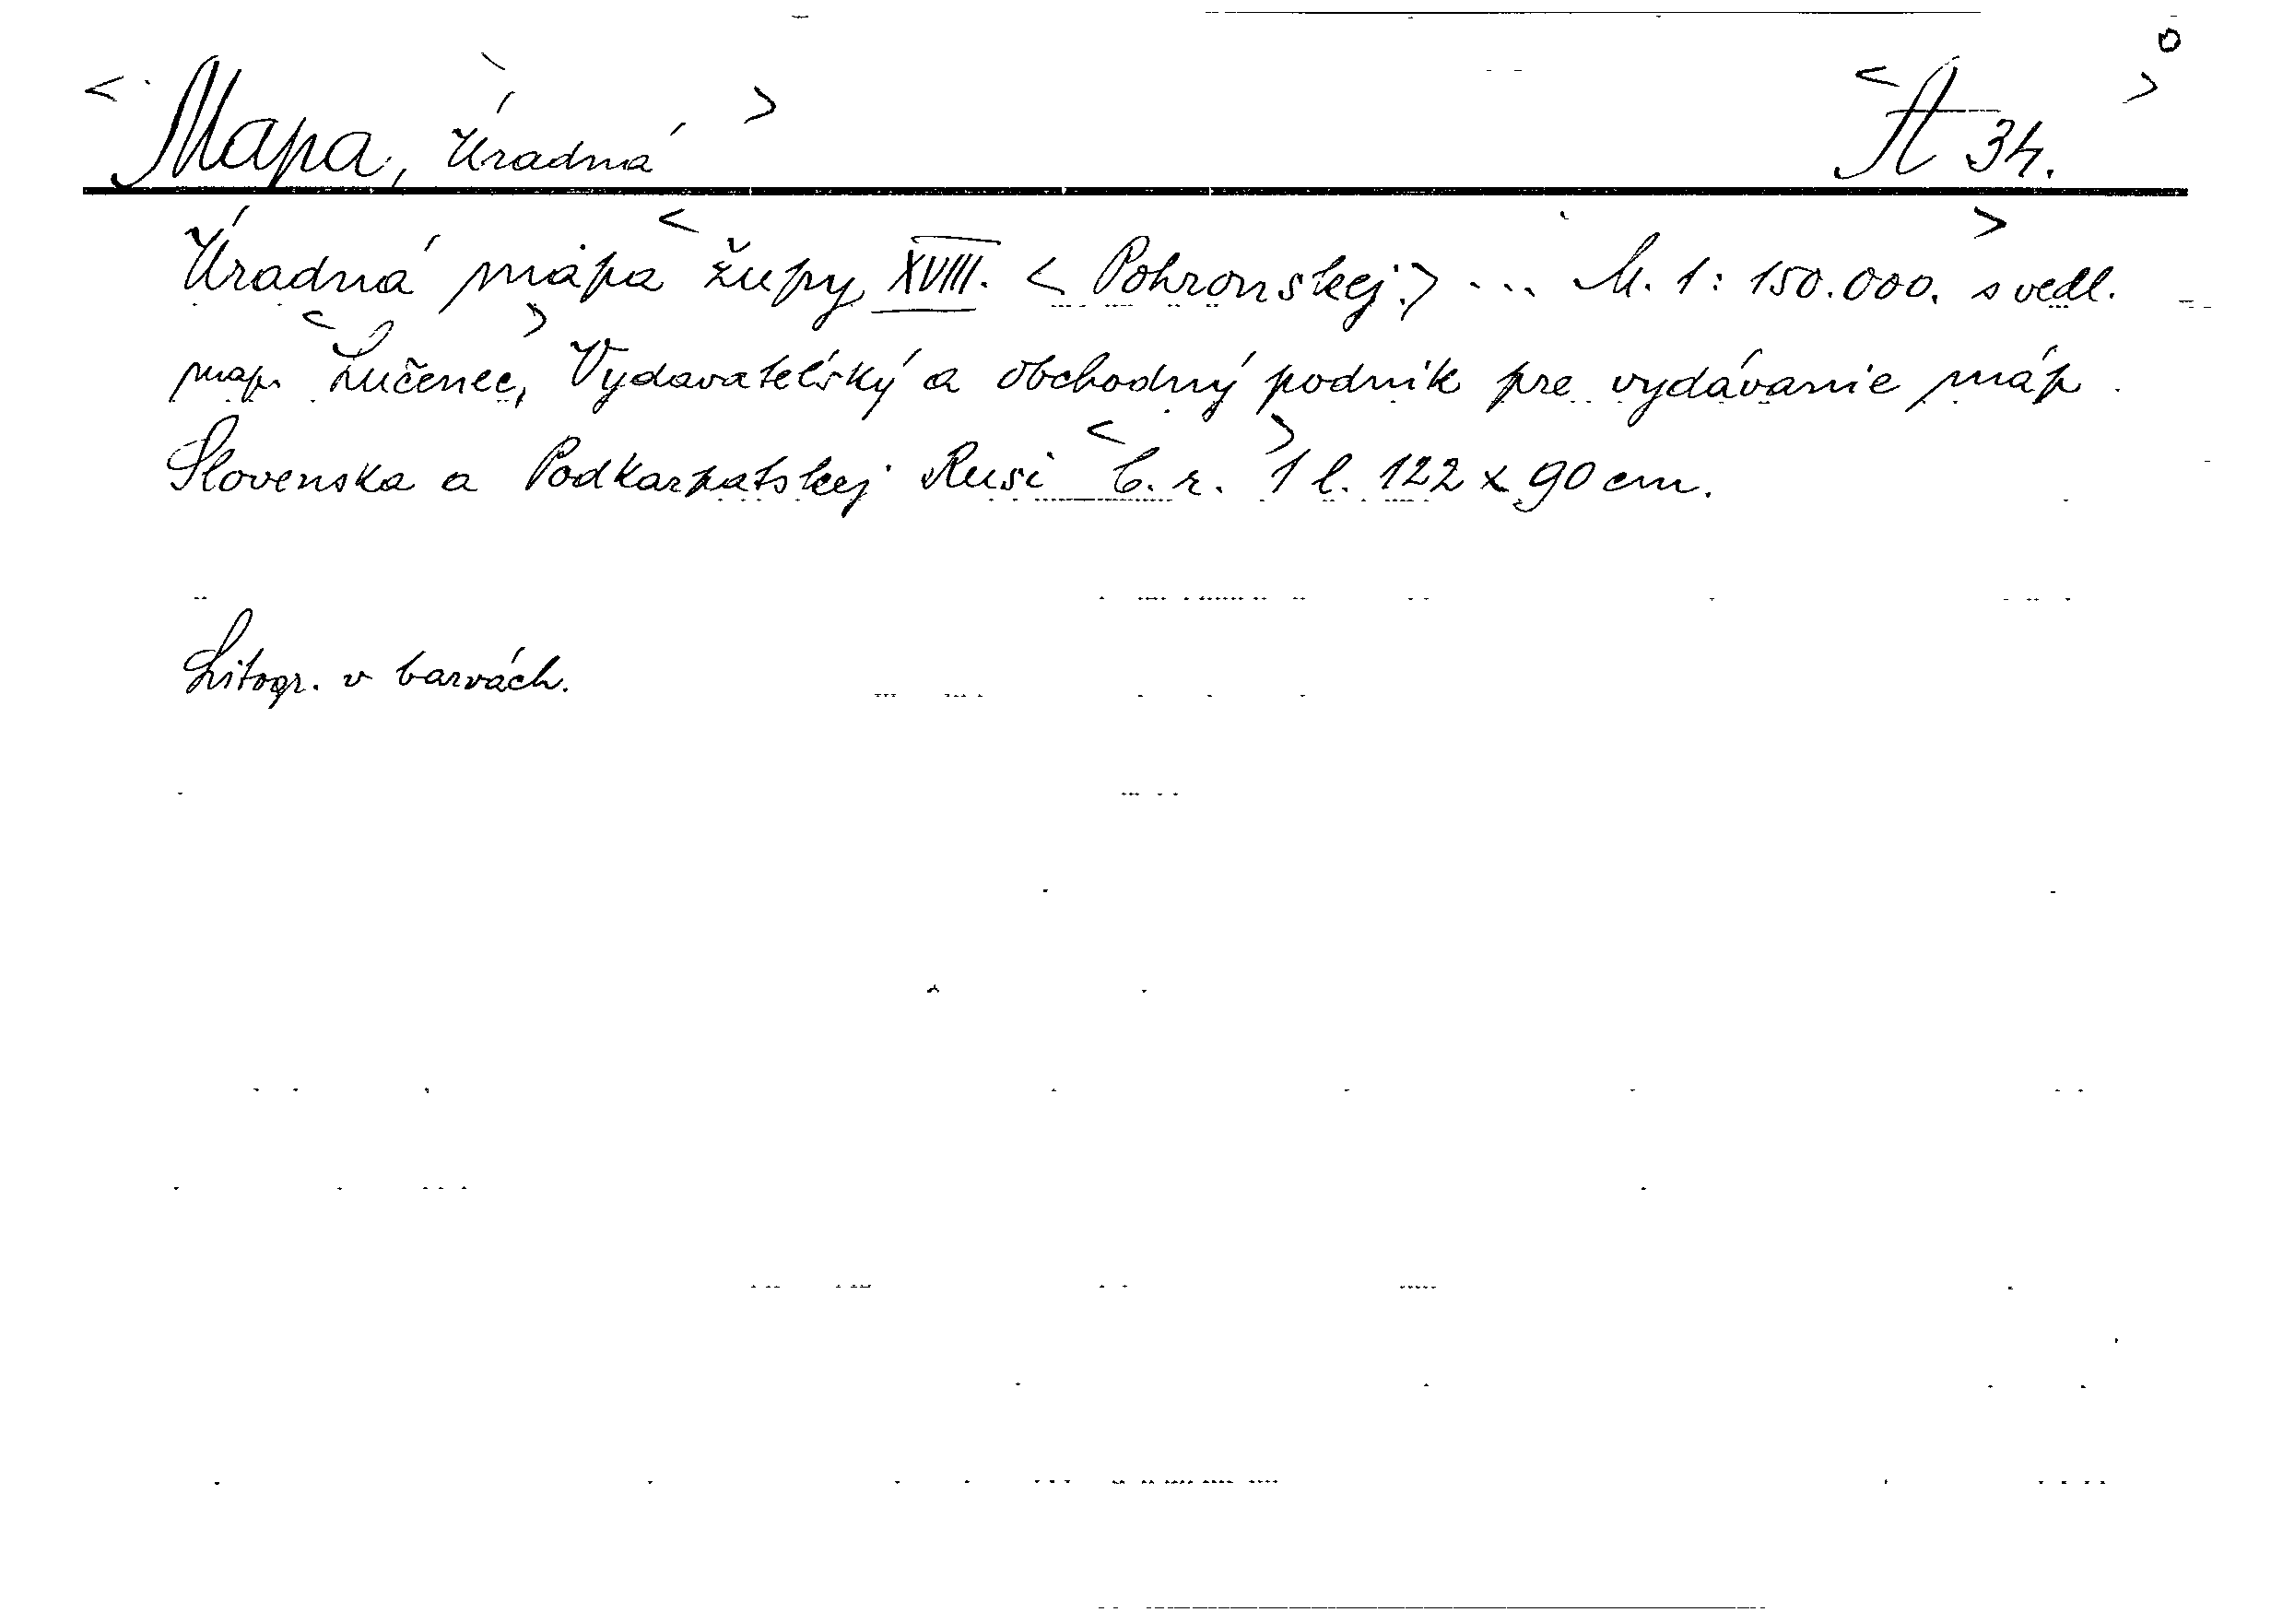 <Mapa, Úradná> <A 34.>
Úradná mapa <župy XVIII. <Pohronskej.> ... M. 1:150.000.> s vedl.
map. <Lučenec,> Vydavateľský a obchodný podnik pre vydávanie máp
Slovenska a Podkarpatskej Rusi <b. r.> 1 l. 122 x 90 cm.
Litogr. v barvách.